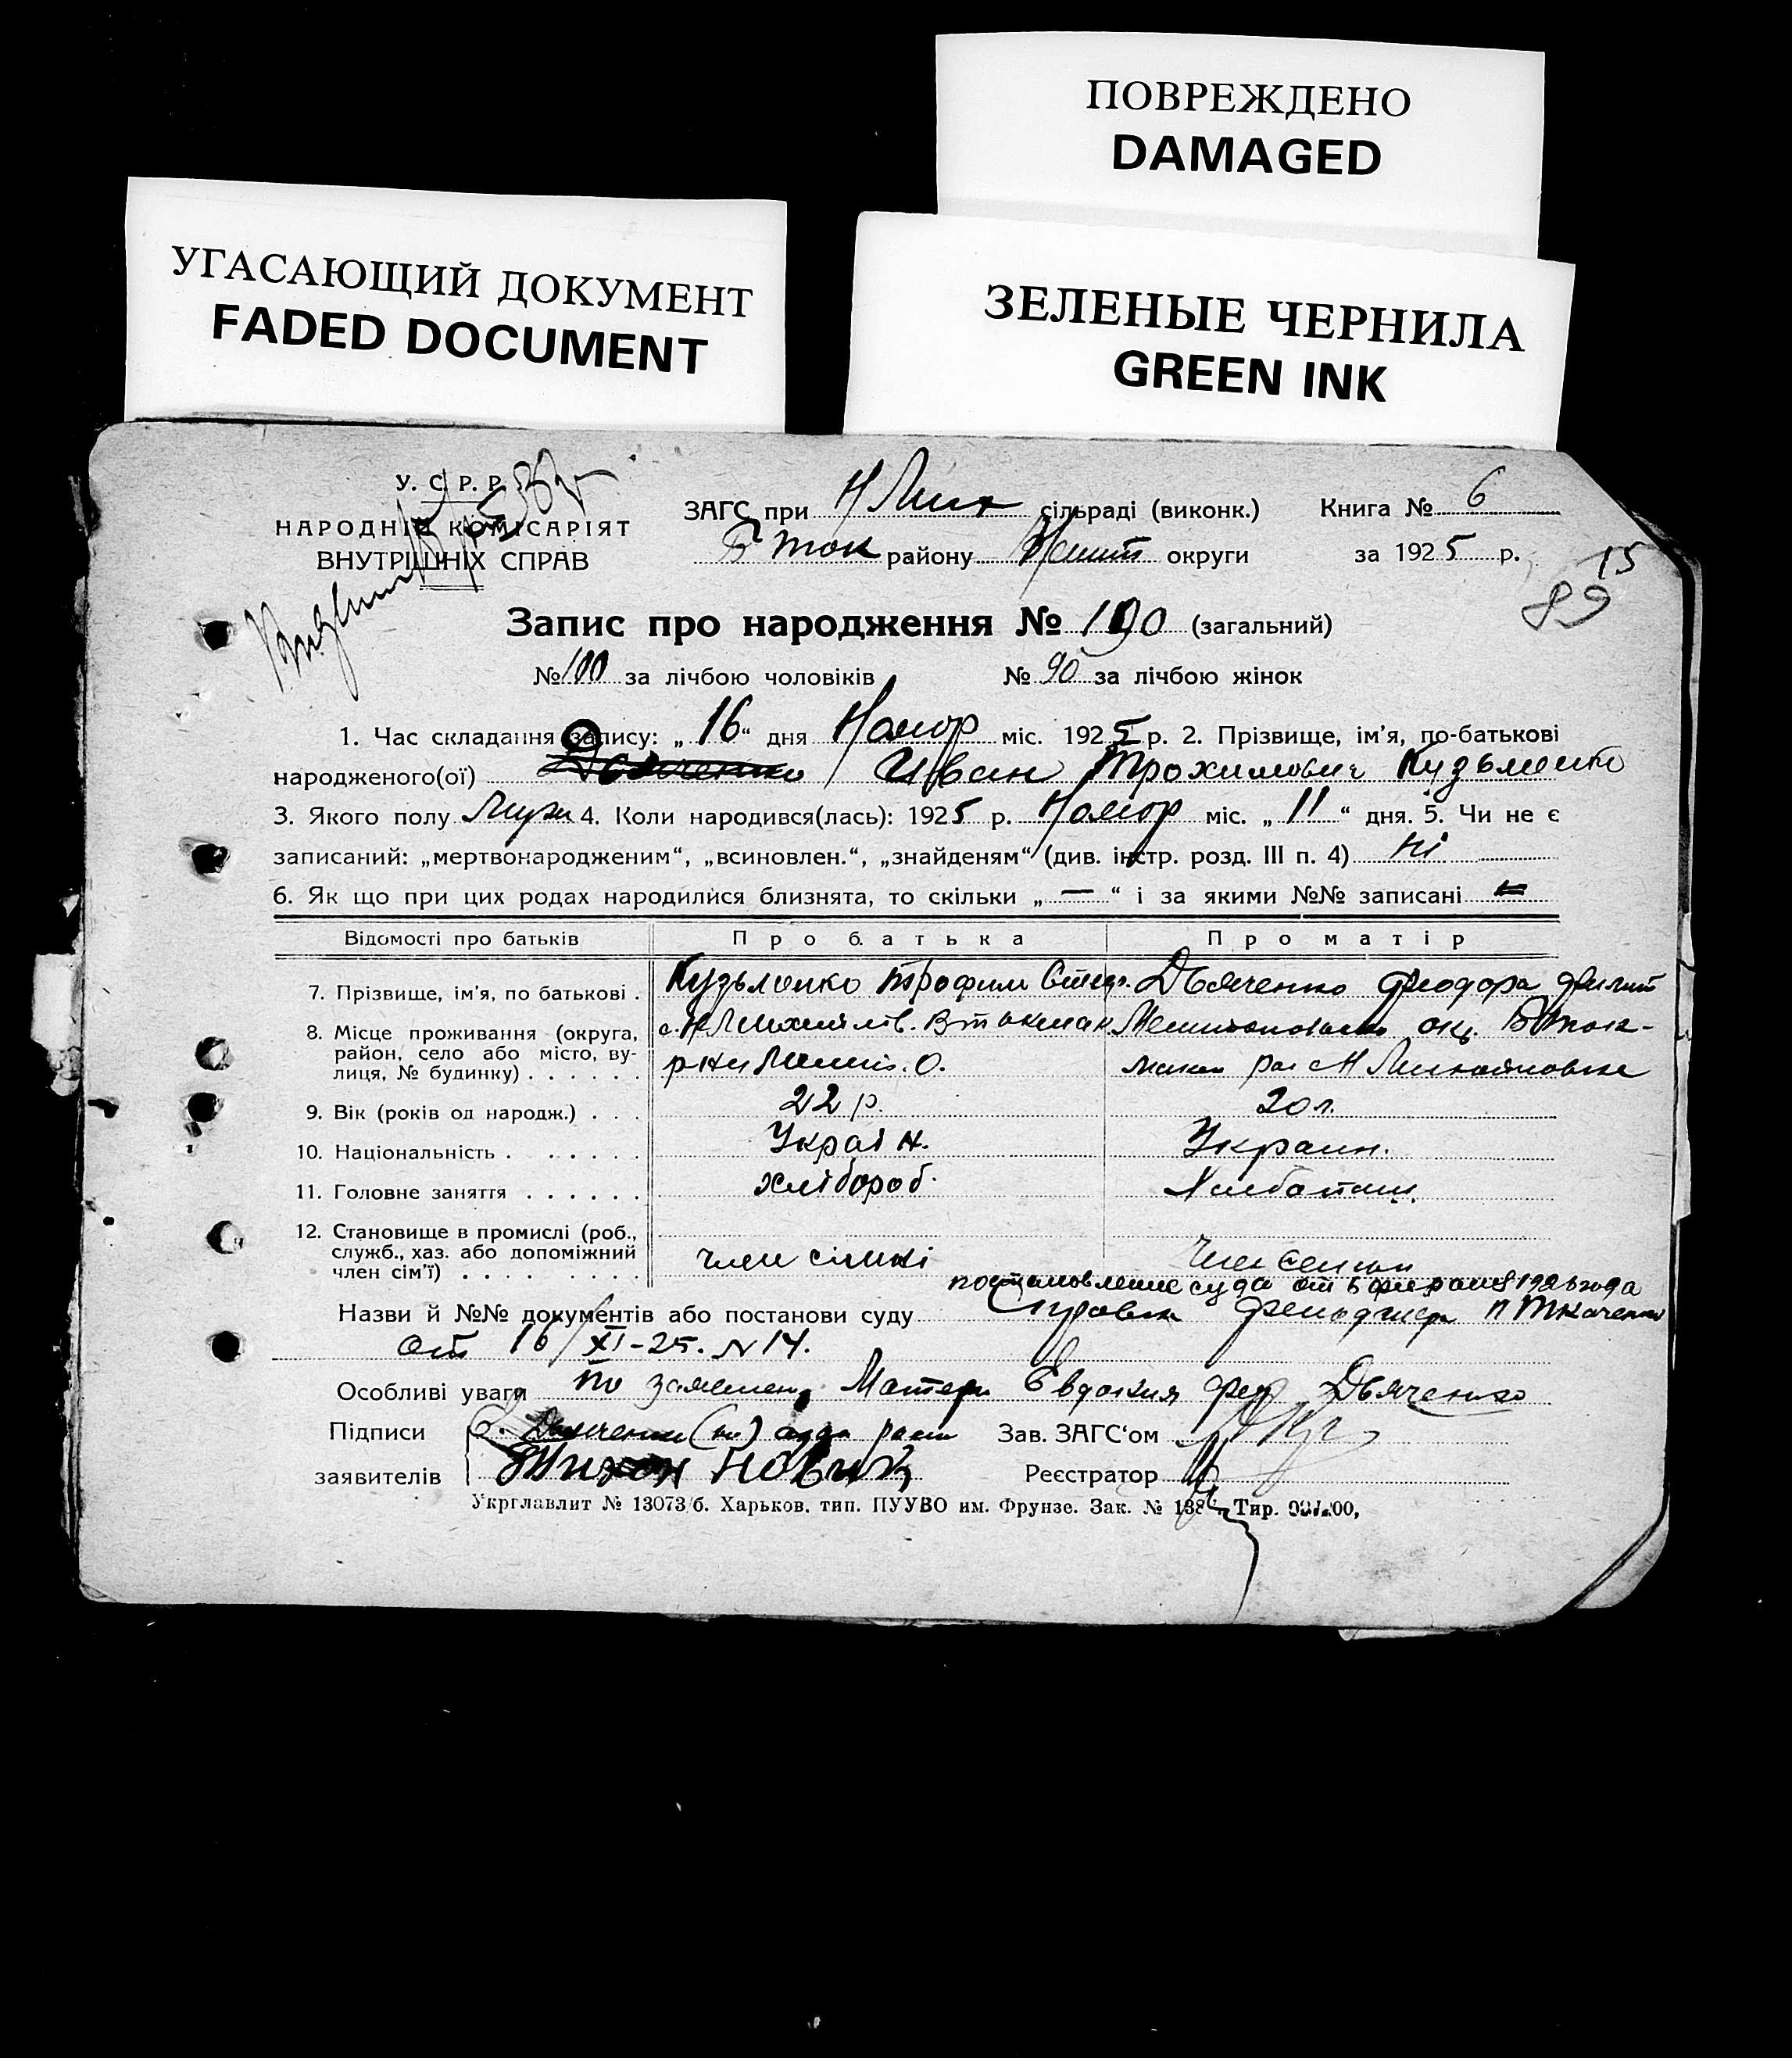 ПОВРЕЖДЕНО
DAMAGED
УГАСАЮЩИЙ ДОКУМЕНТ
FADED DOCUMENT
ЗЕЛЕНЫЕ ЧЕРНИЛА
GREEN INK
У. С. Р. Р.
НАРОДНІЙ КОМІСАРІЯТ
ВНУТРІШНІХ СПРАВ
ЗАГС при Н Мих сільраді (виконк.) Книга № 6
Б Ток району Меліт округи за 1925 р.
15
89
Запис про народження № 190 (загальний)
№ 100 за лічбою чоловіків № 90 за лічбою жінок
1. Час складання запису: „16“ дня Ноябр міс. 1925 р. 2. Прізвище, ім’я, по-батькові
народженого(ої) Дьяченко Иван Трохимович Кузьменко
3. Якого полу Муж 4. Коли народився(лась): 1925 р. Ноябр міс. „11“ дня. 5. Чи не є
записаний: „мертвонародженим“, „всиновлен.“, „знайденям“ (див. інстр. розд. III п. 4) ні
6. Як що при цих родах народилися близнята, то скільки „—“ і за якими №№ записані —
Відомості про батьків Про батька Про матір
7. Прізвище, ім’я, по батькові . Кузьменко Трофим Степ. Дьяченко Феодора Филип
8. Місце проживання (округа,
район, село або місто, ву-
лиця, № будинку) . . . . . .
9. Вік (років од народж.) . . . 22 р. 20 л.
10. Національність . . . . . . . Україн. Украин.
11. Головне заняття . . . . . . хлібороб.
12. Становище в промислі (роб.,
служб., хаз. або допоміжний
член сім’ї) . . . . . . . . член сімї Член семьи
постановление суда от 6 февраля 1926 года
Назви й №№ документів або постанови суду Справка п Ткаченко
от 16/XI-25. N 14.
Особливі уваги по заявлен. Матери Евдокия Фед Дьяченко
Підписи Дьяченко (ни) Зав. ЗАГС‘ом
заявителів Тихон Новик Реєстратор
Укрглавлит № 13073/б. Харьков. тип. ПУУВО им. Фрунзе. Зак. № Тир.